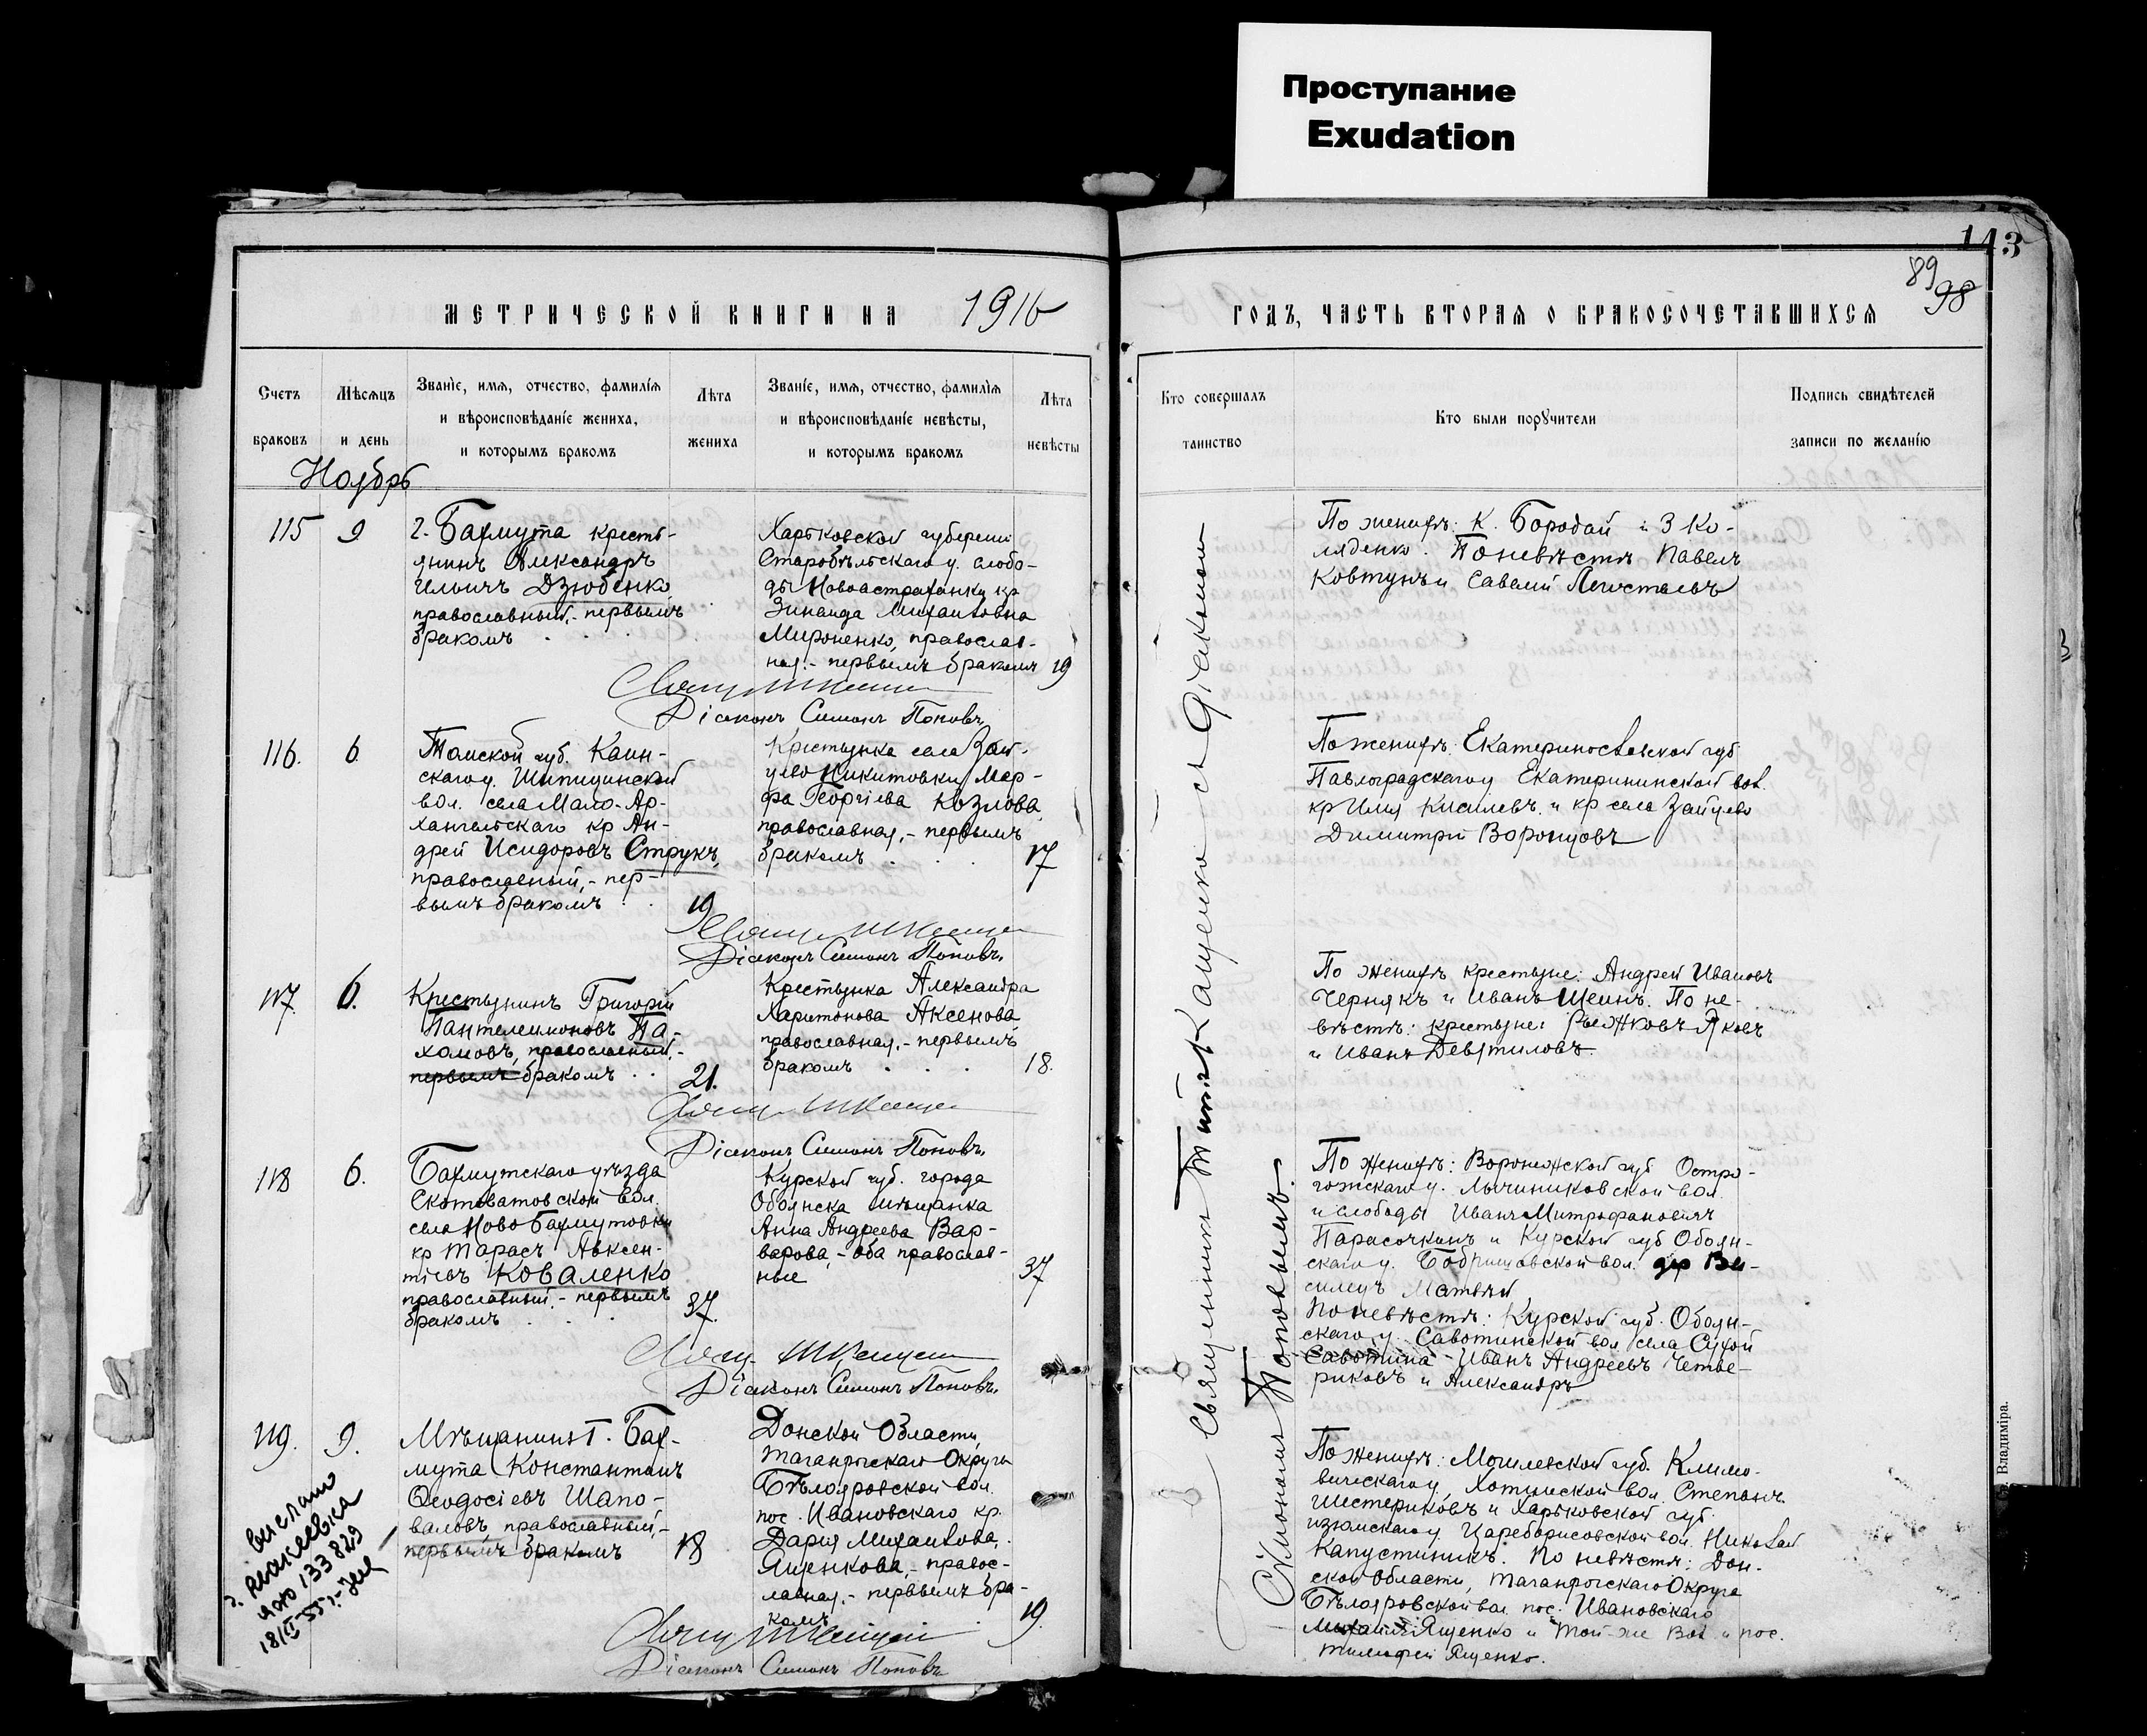 Проступание
Exudation
143
89
98
МЕТРИЧЕСКОЙ КНИГИ НА 1916
ГОДЪ, ЧАСТЬ ВТОРАЯ О БРАКОСОЧЕТАВШИХСЯ
Счетъ
браковъ
Мѣсяцъ
и день
Званіе, имя, отчество, фамилія
и вѣроисповѣданіе жениха,
и которымъ бракомъ
Лѣта
жениха
Званіе, имя, отчество, фамилія
и вѣроисповѣданіе невѣсты,
и которымъ бракомъ
Лѣта
невѣсты
Кто совершалъ
таинство
Кто были поручители
Подпись свидѣтелей
записи по желанію
Ноябрь
115
9
г. Бахмута кресть-
янинъ Александръ
Ильичъ Дзюбенко
православный,- первымъ
бракомъ
Харьковской губерніи
Старобѣльскаго у. слобо-
ды Новоастраханки кр
Зинаида Михаиловна
Мироненко, православ-
ная.- первымъ бракомъ
19
Діаконъ Симонъ Поповъ
По женихѣ: К. Бородай и З Ко-
ляденко. По невѣстѣ Павелъ
Ковтунъ и Савелій
116.
6.
Томской губ. Каин-
скаго у. Шипицинской
вол. села Мало-Ар-
хангельскаго кр Ан-
дрей Исидоровъ Струкъ,
православный,- пер-
вымъ бракомъ
19
Крестьянка села Зай-
цево Никитовки Мар-
фа Георгіева Козлова,
православная,- первымъ
бракомъ
17
Діаконъ Симонъ Поповъ.
По женихѣ: Екатеринославской губ
Павлоградскаго у Екатерининской вол.
кр Илія Киселевъ и кр села Зайцево
Димитрій Воронцовъ
117.
6.
Крестьянинъ Григорій
Пантелеимоновъ Па-
хомовъ, православный,-
первымъ бракомъ
21.
Крестьянка Александра
Харитонова Аксенова
православная,- первымъ
бракомъ
18.
Діаконъ Симонъ Поповъ.
По женихѣ крестьяне: Андрей Ивановъ
Чернякъ и Иванъ Шеинъ. По не-
вѣстѣ: крестьяне: Рыжковъ Яковъ
и Иванъ Девятиловъ.
118
6.
Бахмутскаго уѣзда
Скотоватовской вол.
села Ново Бахмутовки
кр Тарасъ Авксен-
тіевъ Коваленко
православный,- первымъ
бракомъ
37.
Курской губ. города
Обоянска мѣщанка
Анна Андреева Вар-
варова,- оба православ-
ные
37
Діаконъ Симонъ Поповъ.
По женихѣ: Воронежской губ Остро-
гожскаго у.
и слободы Иванъ Митрофановичъ
Парасочкинъ и Курской губ Обоян-
скаго у. Бобрышовской вол.
Матвѣй
По невѣстѣ: Курской губ. Обоян-
скаго у. Савотинской вол села Сухой
Савотина Иванъ Андреевъ Четве-
риковъ и Александръ
119.
9.
Мѣщанинъ г. Бах-
мута Константинъ
Ѳеодосіевъ Шапо-
валовъ, православный,-
первымъ бракомъ
18
Донской Области,
Таганрогскаго Округа
Бѣлояровской вол.
пос. Ивановскаго кр.
Дарія Михаилова
Ященкова,- правос-
лавная,- первымъ бра-
комъ
19.
Діаконъ Симонъ Поповъ
По женихѣ: Могилевской губ. Климо-
вичскаго у, Хотимской вол. Степанъ
Шестериковъ и Харьковской губ.
изюмскаго у Цареборисовской вол. Николай
Капустинъ. По невѣстѣ: Дон-
ской Области, Таганрогскаго Округа
Бѣлояровской вол пос. Ивановскаго
Михаилъ Ященко и той-же вол и пос.
Тимофей Ященко.
Выслано
г. Макеевка
133829
Священникъ Титъ Кащенко съ Діакономъ
Симономъ Поповымъ.
Владиміра.